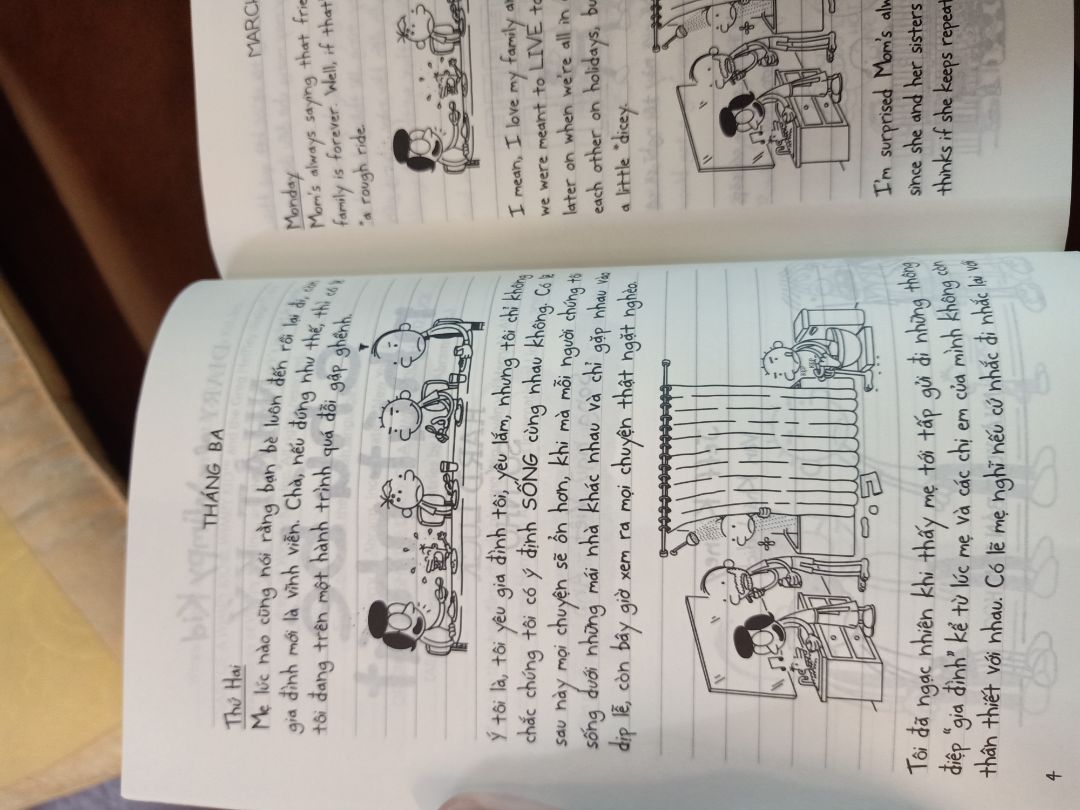 THÁNG BA
Thứ Hai
Mẹ lúc nào cũng nói rằng bạn bè luôn đến rồi lại đi, còn
gia đình mới là vĩnh viễn. Chà, nếu đúng như thế, thì có lẽ
tôi đang trên một hành trình quá đỗi gập ghềnh.
Ý tôi là, tôi yêu gia đình tôi, yêu lắm, nhưng tôi chỉ không
chắc chúng tôi có ý định SỐNG cùng nhau không. Có lẽ
sau này mọi chuyện sẽ ổn hơn, khi mà mỗi người chúng tôi
sống dưới những mái nhà khác nhau và chỉ gặp nhau vào
dịp lễ, còn bây giờ xem ra mọi chuyện thật ngặt nghèo.
Tôi đã ngạc nhiên khi thấy mẹ tới tấp gửi đi những thông
điệp "gia đình" kể từ lúc mẹ và các chị em của mình không còn
thân thiết với nhau. Có lẽ mẹ nghĩ nếu cứ nhắc đi nhắc lại với
4
MARCH
Monday
Mom's always saying that
family is forever. Well, if that
a rough ride.
I mean, I love my family
we were meant to LIVE
later on when we're all in
each other on holidays,
a little "dicey.
I'm surprised Mom's
since she and her sisters
thinks if she keeps